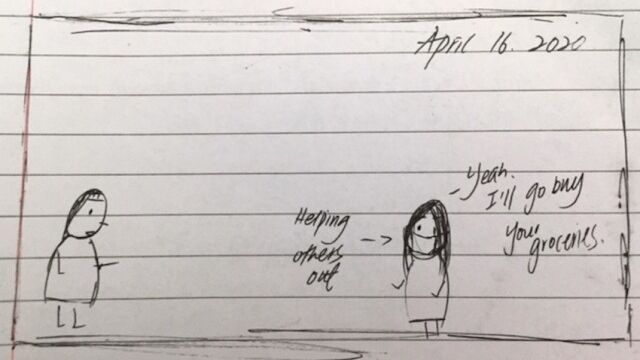 April 16. 2020
Yeah.
I'll go buy
your
groceries.
Helping
others
out